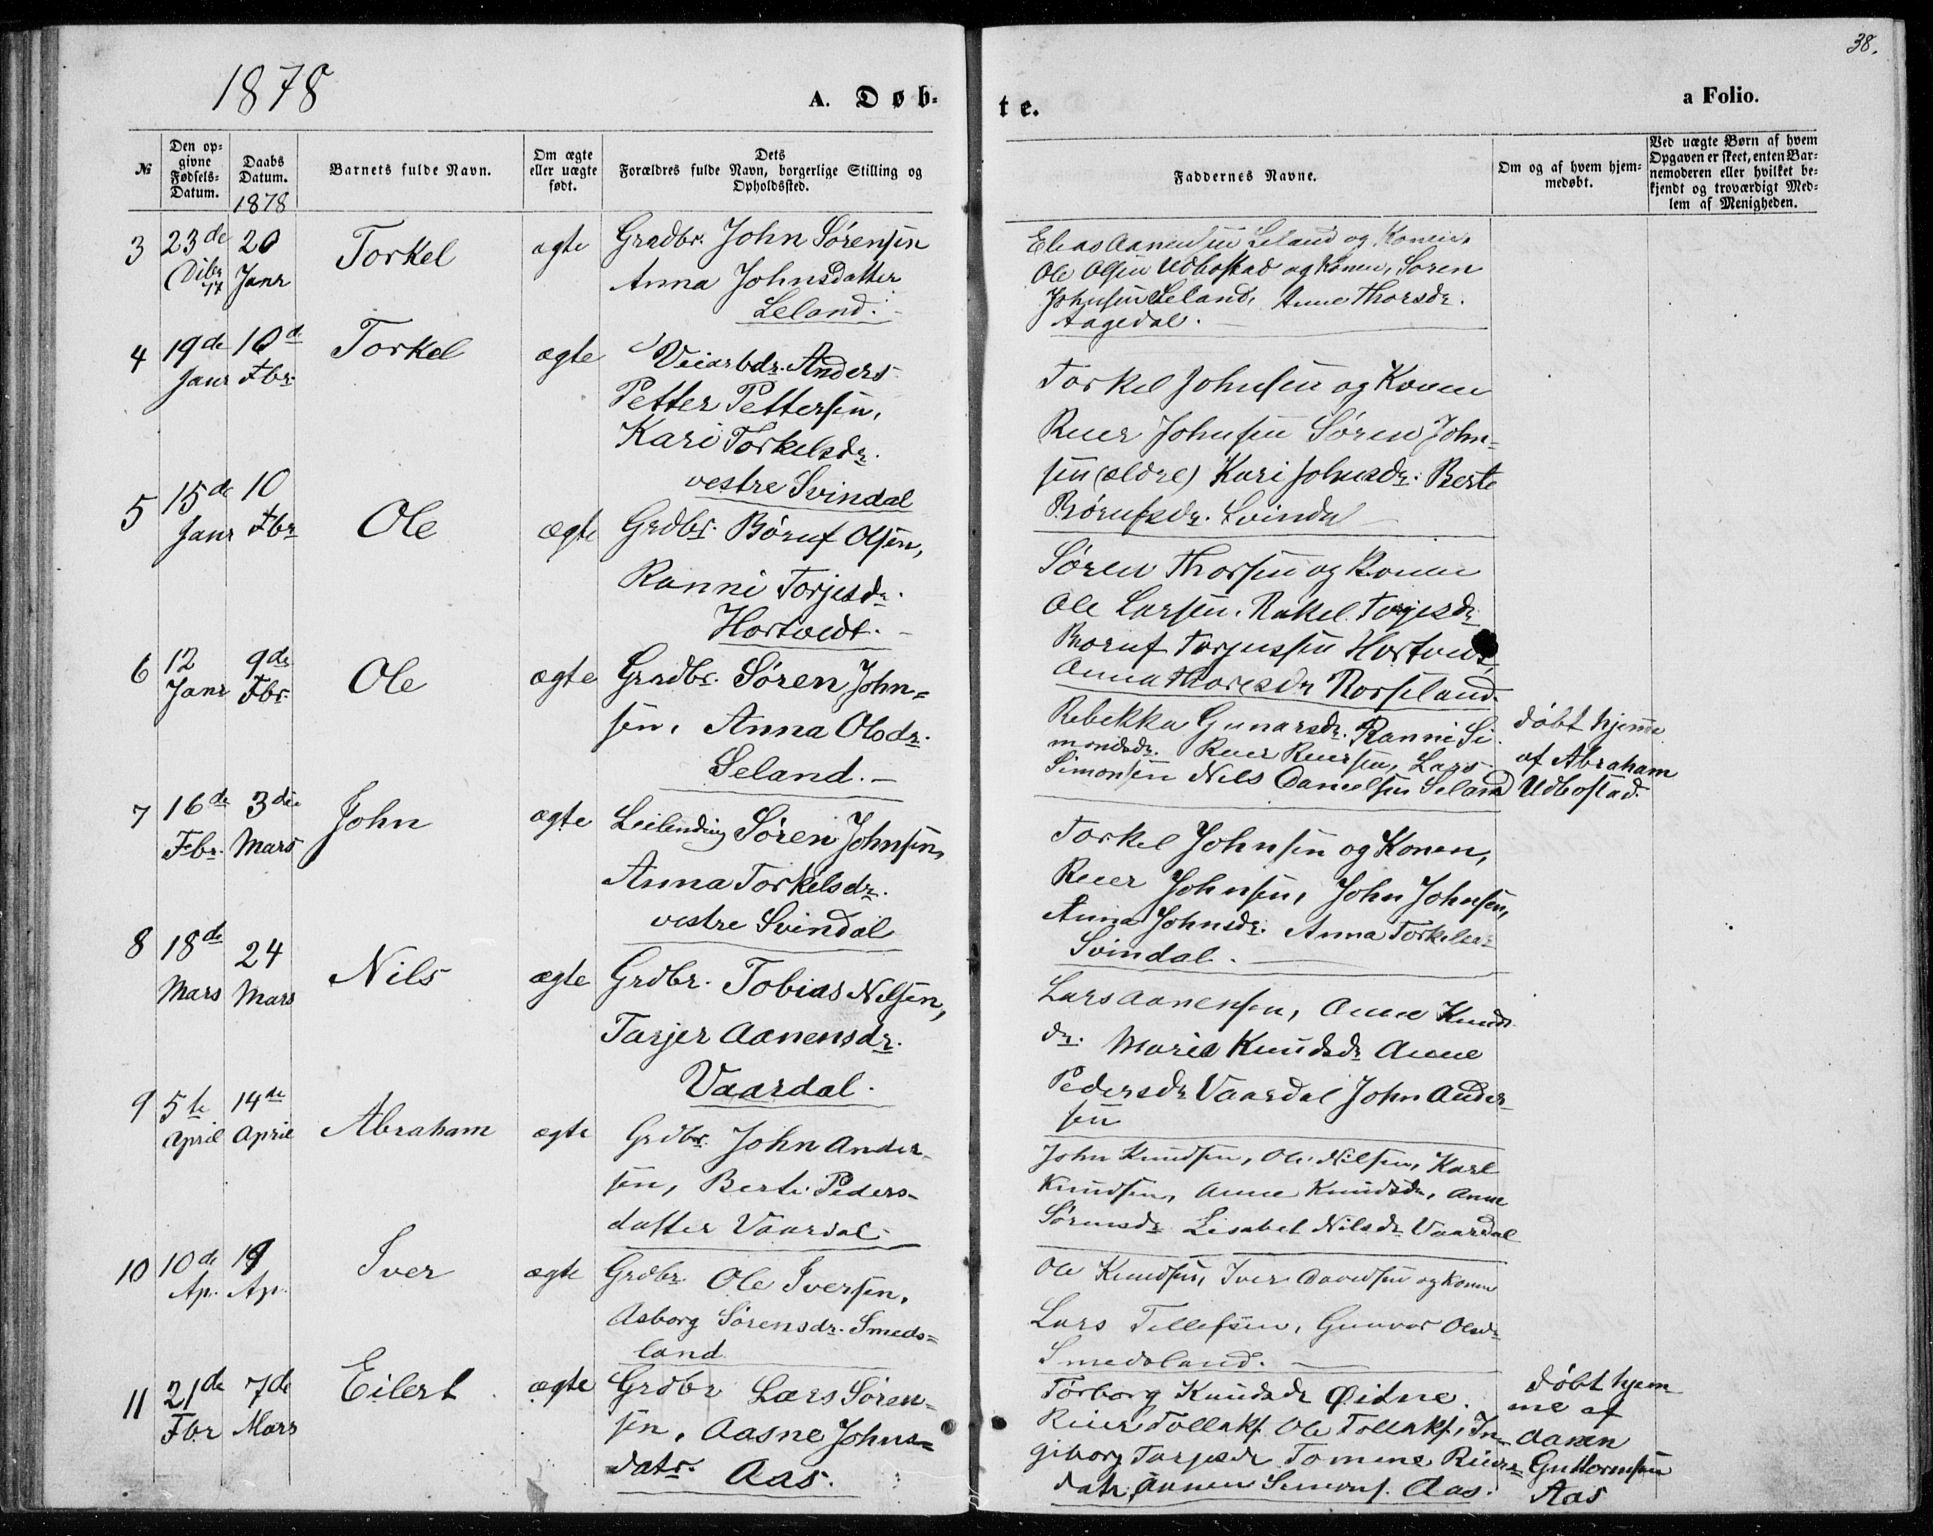 38.
1878
A. Døb-
te.
a Folio.
№
Den op-
givne
Fødsels-
Datum.
Daabs
Datum.
1878
Barnets fulde Navn.
Om ægte
eller uægte
født.
Dets
Forældres fulde Navn, borgerlige Stilling og
Opholdssted.
Faddernes Navne.
Om og af hvem hjem-
medøbt.
Ved uægte Børn af hvem
Opgaven er skeet, enten Bar-
nemoderen eller hvilket be-
kjendt og troværdigt Med-
lem af Menigheden.
3
23de
Dibr
77
20
Janr
Torkel
ægte
Grdbr. John Sørensen
Anna Johnsdatter
Leland.
Elias Aanensen Leland og Konen,
Ole Olsen Udbostad og Konen, Søren
Johnsen Leland, Anne Thorsdr.
Aagedal.
4
19de
Janr
10de
Fbr.
Torkel
ægte
Veiarbdr. Anders
Petter Pettersen,
Kari Torkelsdr.
vestre Svindal
Torkel Johnsen og Konen
Reier Johnsen Søren John-
sen (ældre) Kari Johnsdr. Berte
Børufsdr. Svindal
5
15de
Janr
10
Fbr
Ole
ægte
Grdbr. Børuf Olsen,
Ranni Torjesdr.
Hortvedt.
Søren Thorsen og Konen
Ole Larsen. Rakel Torjesdr
Børuf Torjussen Hortvedt,
Anna Thoresdr Rosseland.
6
12
Janr
9de
Fbr.
Ole
ægte
Grdbr. Søren John-
sen, Anna Olsdr.
Seland.
Rebekka Gunarsdr. Ranni Si-
monsdr. Reier Reiersen, Lars
Simonsen Nils Danielsen Seland
døbt hjeme
af Abraham
Udbostad.
7
16de
Fbr.
3die
Mars
John
ægte
Leilending Søren Johnsen,
Anna Torkelsdr.
vestre Svindal
Torkel Johnsen og Konen,
Reier Johnsen, John Johnsen,
Anna Johnsdr. Anna Torkelsdr
Svindal.
8
18de
Mars
24
Mars
Nils
ægte
Grdbr. Tobias Nilsen,
Tarjer Aanensdr.
Vaardal.
Lars Aanensen, Anne Knuds
dr. Marie Knudsdr Anne
Pedersdr Vaardal John Ander-
sen
9
5te
April
14de
April
Abraham
ægte
Grdbr. John Ander-
sen, Berte Peders-
datter Vaardal
John Knudsen, Ole Nilsen, Karl
Knudsen, Anne Knudsdr, Anne
Sørensdr Lisabet Nilsdr Vaardal
10
10de
Ap.
19
Ap.
Iver
ægte
Grdbr Ole Iversen,
Asborg Sørensdr. Smeds-
land
Ole Knudsen, Iver Davidsen og Konen
Lars Tellefsen, Gunvor Olsdr
Smedsland.
11
21de
Fbr
7de
Mars
Eilert
ægte
Grdbr Lars Søren-
sen, Aasne Johns-
datr. Aas.
Torborg Knudsdr Øidne.
Reier Tollaks. Ole Tollaks, In-
giborg Tarjesdr Tomine Reiers
datr, Aanen Simons. Aas.
døbt hjem
me af
Aanen
Guttormsen
Aas